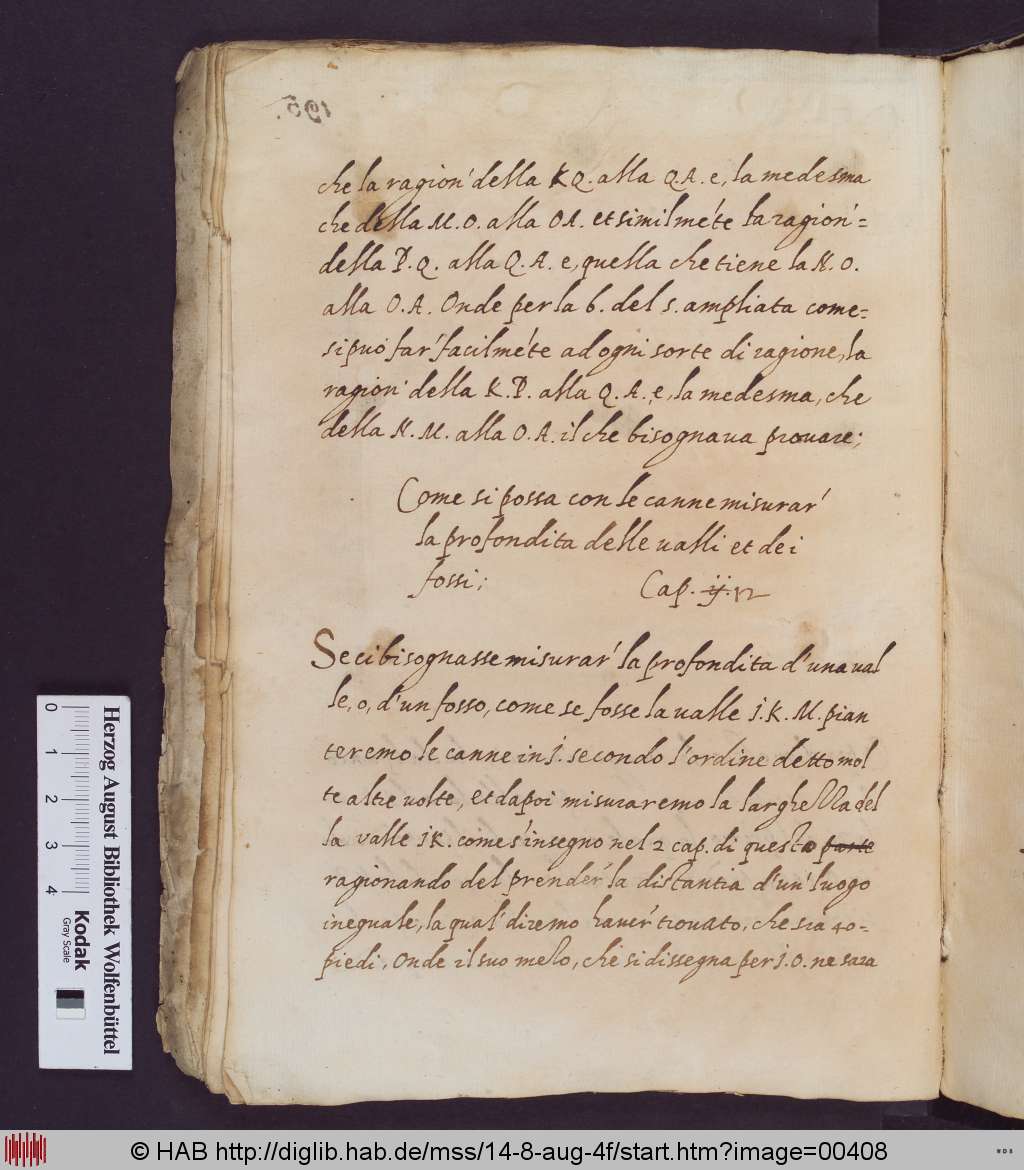 195.
che la ragion' della K Q. alla Q.A. e, la medesma
che della M.O. alla O A. et similme'te la ragion'=
della P.Q. alla Q.A. e, quella che tiene la N.O.
alla O.A. Onde per la 6. del 5. ampliata come=
si puo far' facilme'te ad ogni sorte di ragione, la
ragion' della K.P. alla Q.A. e, la medesma, che
della N.M. alla O.A. il che bisognaua prouare;
Come si possa con le canne misurar'
la profondita delle ualli et dei
fossi;
Cap. ij. 12
Se ci bisognasse misurar' la profondita d'una ual
le, o, d'un fosso, come se fosse la ualle I.K.M. pian
teremo le canne in I. secondo l'ordine detto mol
te altre uolte, et dapoi misuraremo la larghezza del
la valle I K. come s'insegno nel 2 cap. di questo parte
ragionando del prender' la distantia d'un' luogo
ineguale, la qual' diremo hauer' trouato, che sia 40=
piedi, Onde il suo mezo, che si dissegna per I.O. ne sara
Herzog August Bibliothek Wolfenbüttel
Kodak
Gray Scale
0 1 2 3 4
© HAB http://diglib.hab.de/mss/14-8-aug-4f/start.htm?image=00408